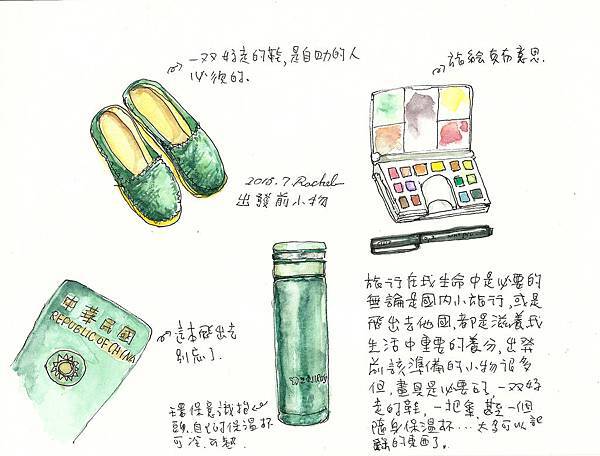 一双好走的鞋,是自助的人
必須的.
旅繪真有意思.
2016.7 Rachel
出發前小物
中華民國
REPUBLIC OF CHINA
這本飛出去
別忘了.
環保意識抬
頭,自己的保溫杯
可冷可熱
旅行在我生命中是必要的
無論是國內小旅行,或是
飛出去他國.都是滋養我
生活中重要的養分,出發
前該準備的小物很多
但,畫具是必要的,一双好
走的鞋,一把傘,甚至一個
隨身保溫杯...太多可以記
錄的東西了.